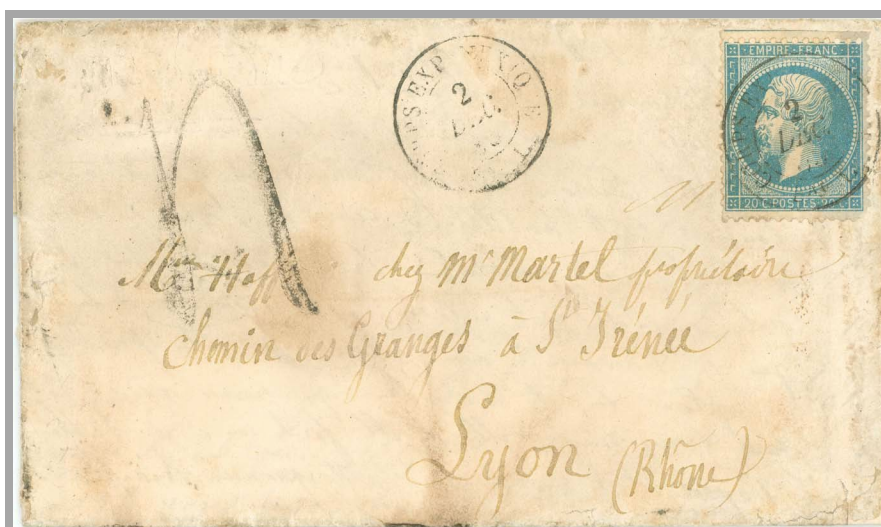 EXP. MEXIQUE
2
DEC.
EMPIRE FRANC
2
DEC.
20 C POSTES 20 C
chez Mr Martel propriétaire
Chemin des Granges à St Irénée
Lyon (Rhône)